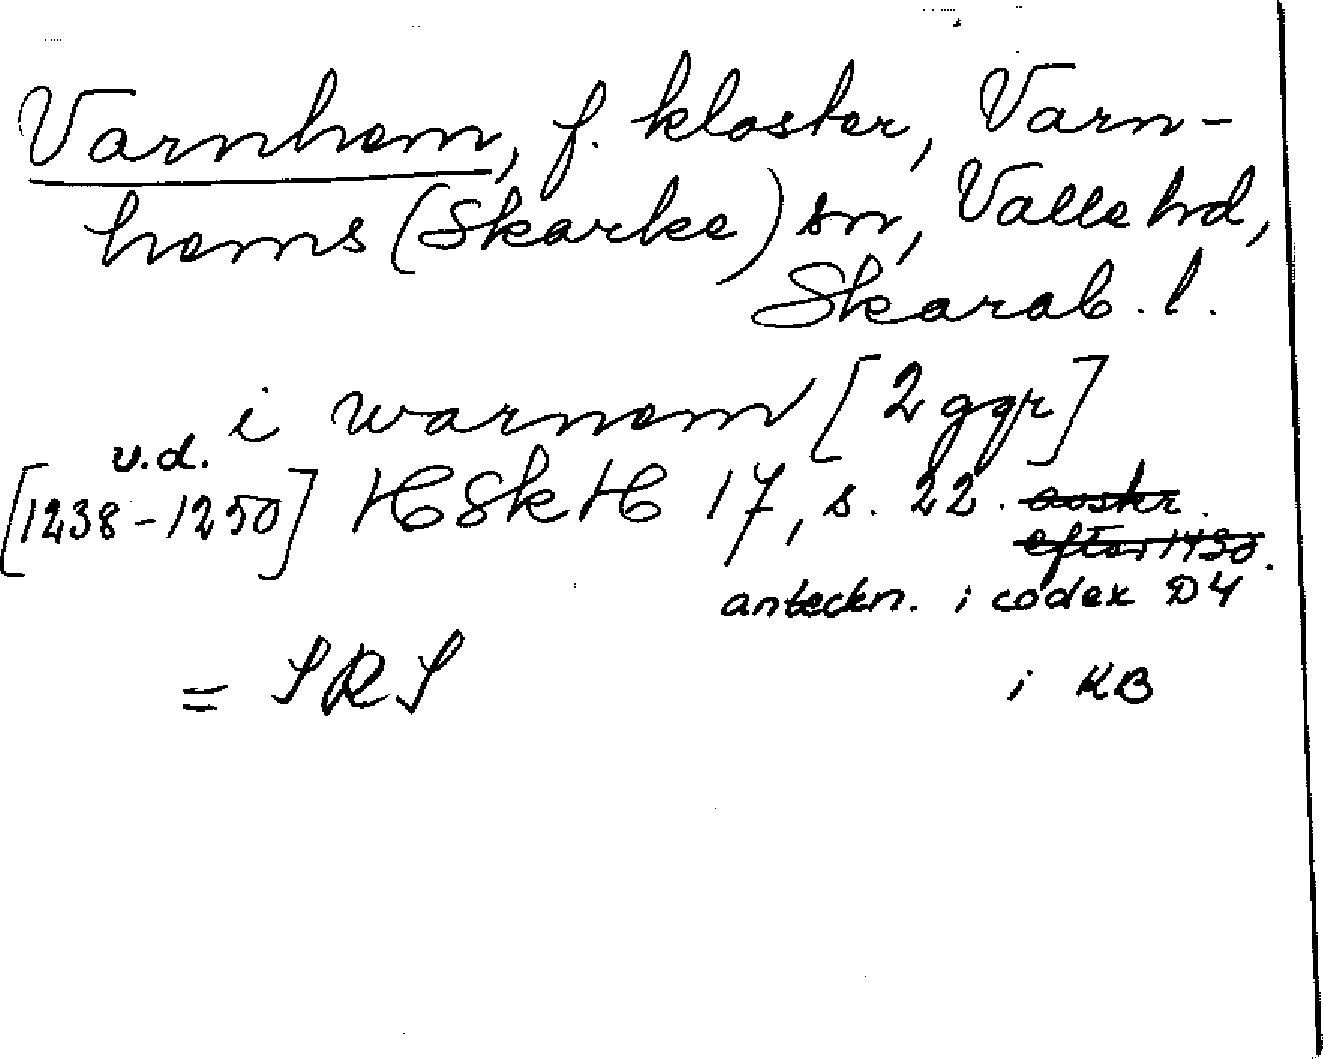 Varnhem, f. kloster, Varn-
hems (Skarke) sn, Valle hd,
Skarab. l.
i warnem [2 ggr]
u.d.
[1238-1250] HSkH 17, s. 22. avskr.
efter 1430.
anteckn. i codex D4
= SRS i KB